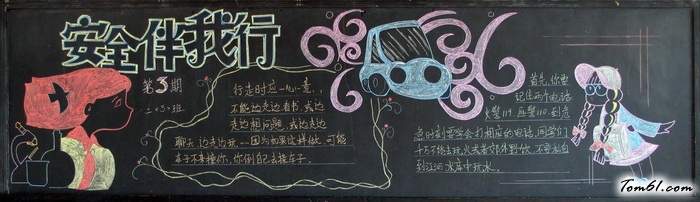 安全伴我行
第3期
二·3·班
行走时应一心一意,
不能边走边看书,或边
走边想问题,或边走边
聊天,边走边玩……因为如果这样做,可能
车子不来撞你,你倒自己去撞车子。
首先,你要
记住两个电话
火警119,匪警110,到危
急时刻要学会打相应的电话,同学们
千万不能去玩火或者郊外野炊,不要私自
到江河水库中玩水。
Tom61.com